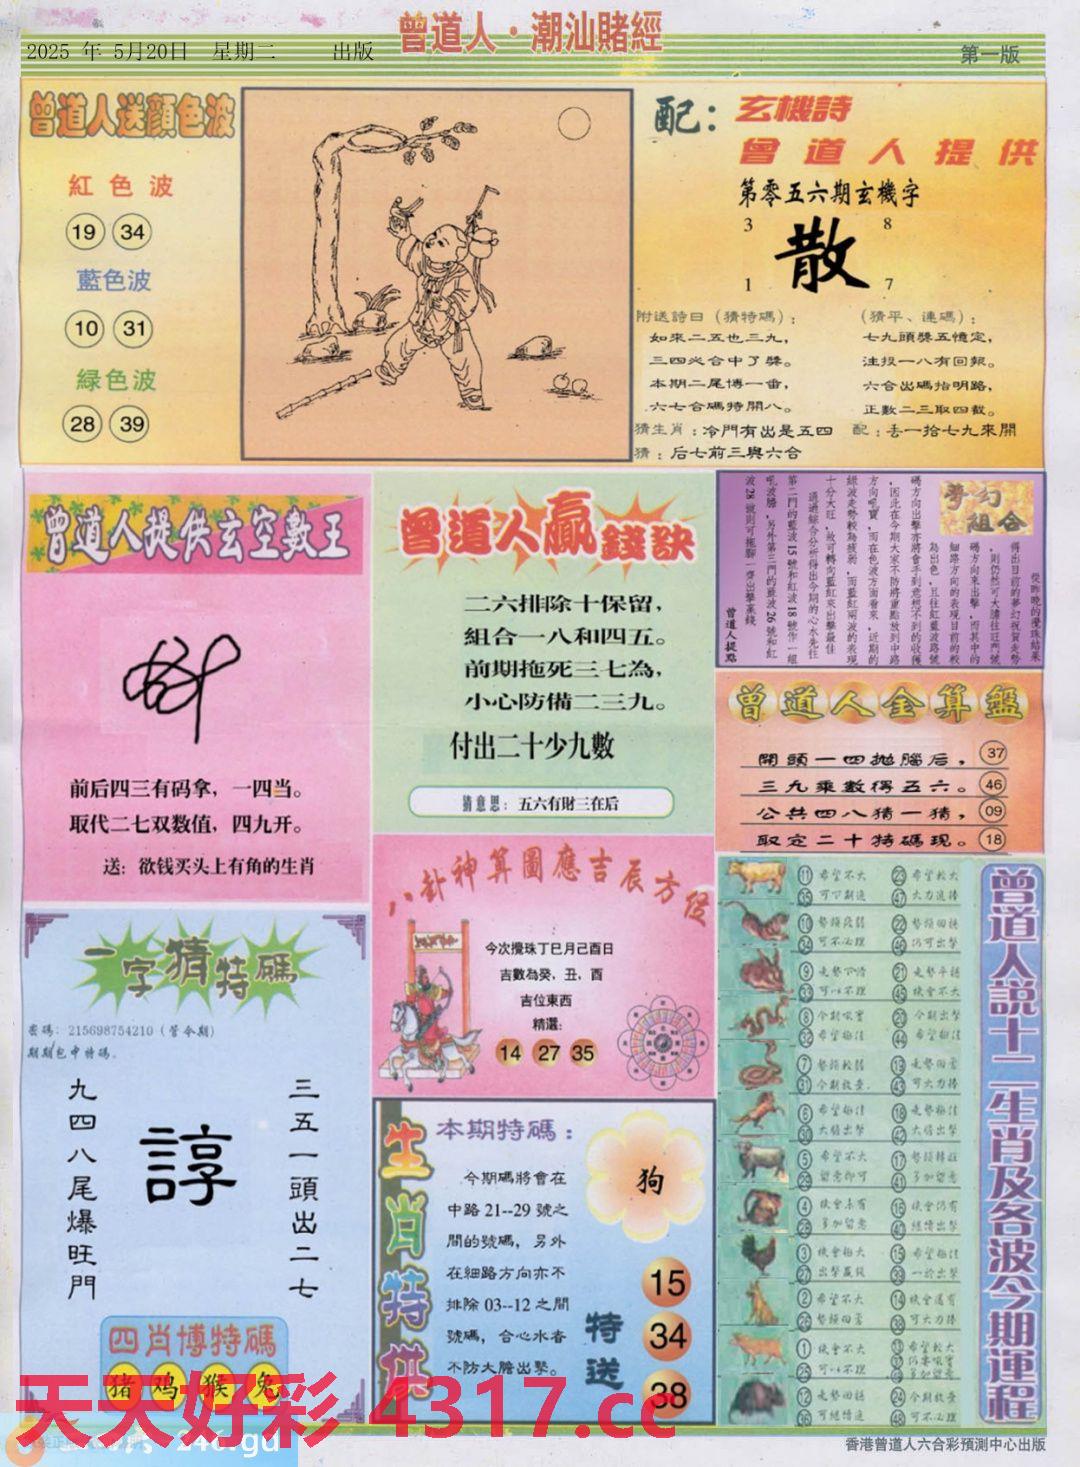 曾道人·潮汕賭經
2025 年 5月20日 星期二 出版
第一版
曾道人送顔色波
紅色波
19 34
藍色波
10 31
緑色波
28 39
配：玄機詩
曾道人提供
第零五六期玄機字
3 8
散
1 7
附送詩曰（猜特碼）：
如來二五也三九，
三四必合中了獎。
本期二尾博一番，
六七合碼特開八。
猜生肖：冷門有出是五四
猜：后七前三與六合
（猜平、連碼）：
七九頭獎五憶定，
注投一八有回報。
六合出碼指明路，
正數二三取四截。
配：丢一拾七九來開
曾道人提供玄空數王
前后四三有码拿，一四当。
取代二七双数值，四九开。
送：欲钱买头上有角的生肖
曾道人贏錢訣
二六排除十保留，
組合一八和四五。
前期拖死三七為，
小心防備二三九。
付出二十少九數
猜意思：五六有財三在后
夢幻組合
從昨晚的攪珠結果
得出目前的夢幻祝賀走勢
，則仍然可大膽往旺門號
碼方向來出擊，而其中的
細路方向的表現目前的較
為出色，且往紅藍波路號
碼方向出擊亦將會手到意想不到的收獲
，因此在今期大家不防將重點放到中路
方向吼寶，而在色波方面看來，近期的
綠波走勢較為疲弱，而藍紅兩波的表現
十分大旺，故可轉向藍紅來出擊最佳
通過綜合分析得出今期的心水先往
第二門的藍波15號和紅波18號作一組
吼波膽，另外第三門的藍波26號和紅
波28號則可推腳一齊出擊贏錢
曾道人提點
曾道人金算盤
開頭一四拋腦后， 37
三九乘數得五六。 46
公共四八猜一猜， 09
取定二十特碼現。 18
一字猜特碼
密碼：215698754210（管今期）
期期包中特碼。
九四八尾爆旺門
諄
三五一頭出二七
四肖博特碼
猪 鸡 猴 兔
八卦神算圖應吉辰方位
今次攪珠丁巳月己酉日
吉數為癸，丑，酉
吉位東西
精選:
14 27 35
生肖特供
本期特碼：
今期碼將會在
中路21--29號之
間的號碼，另外
在細路方向亦不
排除03--12之間
號碼，合心水者
不防大膽出擊。
狗
特送
15
34
38
曾道人説十二生肖及各波今期運程
11 希望不大 23 希望較大
35 可丁期進 47 大力追捧
10 22
34 可不必理 46 仍可出擊
9 21 走勢平穩
33 可以不理 45 機會不大
8 今期吼實 20 今期出擊
32 希望極佳 44 希望極佳
7 勢頭較弱 19 走勢回落
31 今期放棄. 43 可大力捧
6 希望極佳 18 走勢極佳
30 大膽出擊 42 大膽出擊
5 希望不大 17 勢頭轉旺
29 留意即可 41 多加留意
4 機會未有 16 機會仍有
28 多加留意 40 繼續出擊
3 機會極大 15 希望極佳
27 出擊贏錢 39 一於出擊
2 希望不大 14 機會還有
26 勢頭回落 38 可大力捧
1 希望不大 13 希望較大
25 可以不理
12 走勢回穩 24 今期放棄
36 可繼續追 48 可不必理
天天好彩 4317.cc
246.gd
香港曾道人六合彩預測中心出版